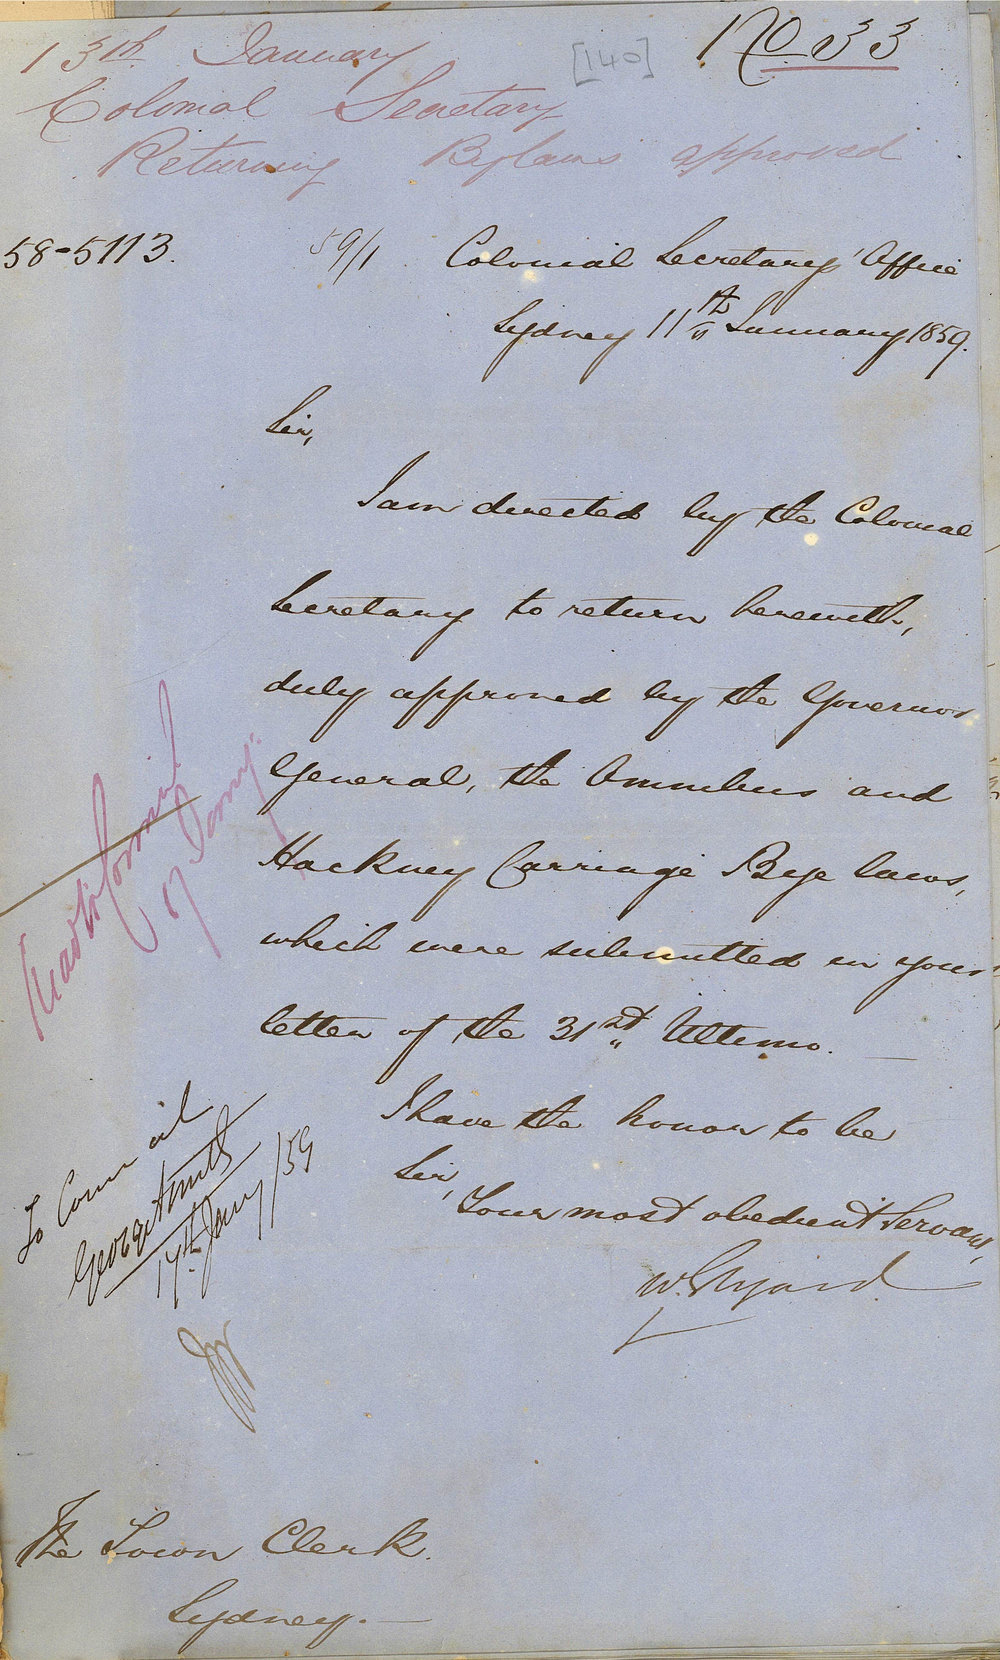 No 33
[140]
13th January
Colonial Secretary
Returning Bylaws approved
58-5113.
59/1
Colonial Secretary's Office
Sydney 11th January 1859.
Sir,
I am directed by the Colonial
Secretary to return herewith,
duly approved by the Governor
General, the Omnibus and
Hackney Carriage Bye laws,
which were submitted in your
letter of the 31st Ultimo.
I have the honor to be
Sir,
Your most obedient Servant,
W. Elyard
Read to Council
17 Jany.
To Council
George Smith
17th Jany /59
The Town Clerk.
Sydney.